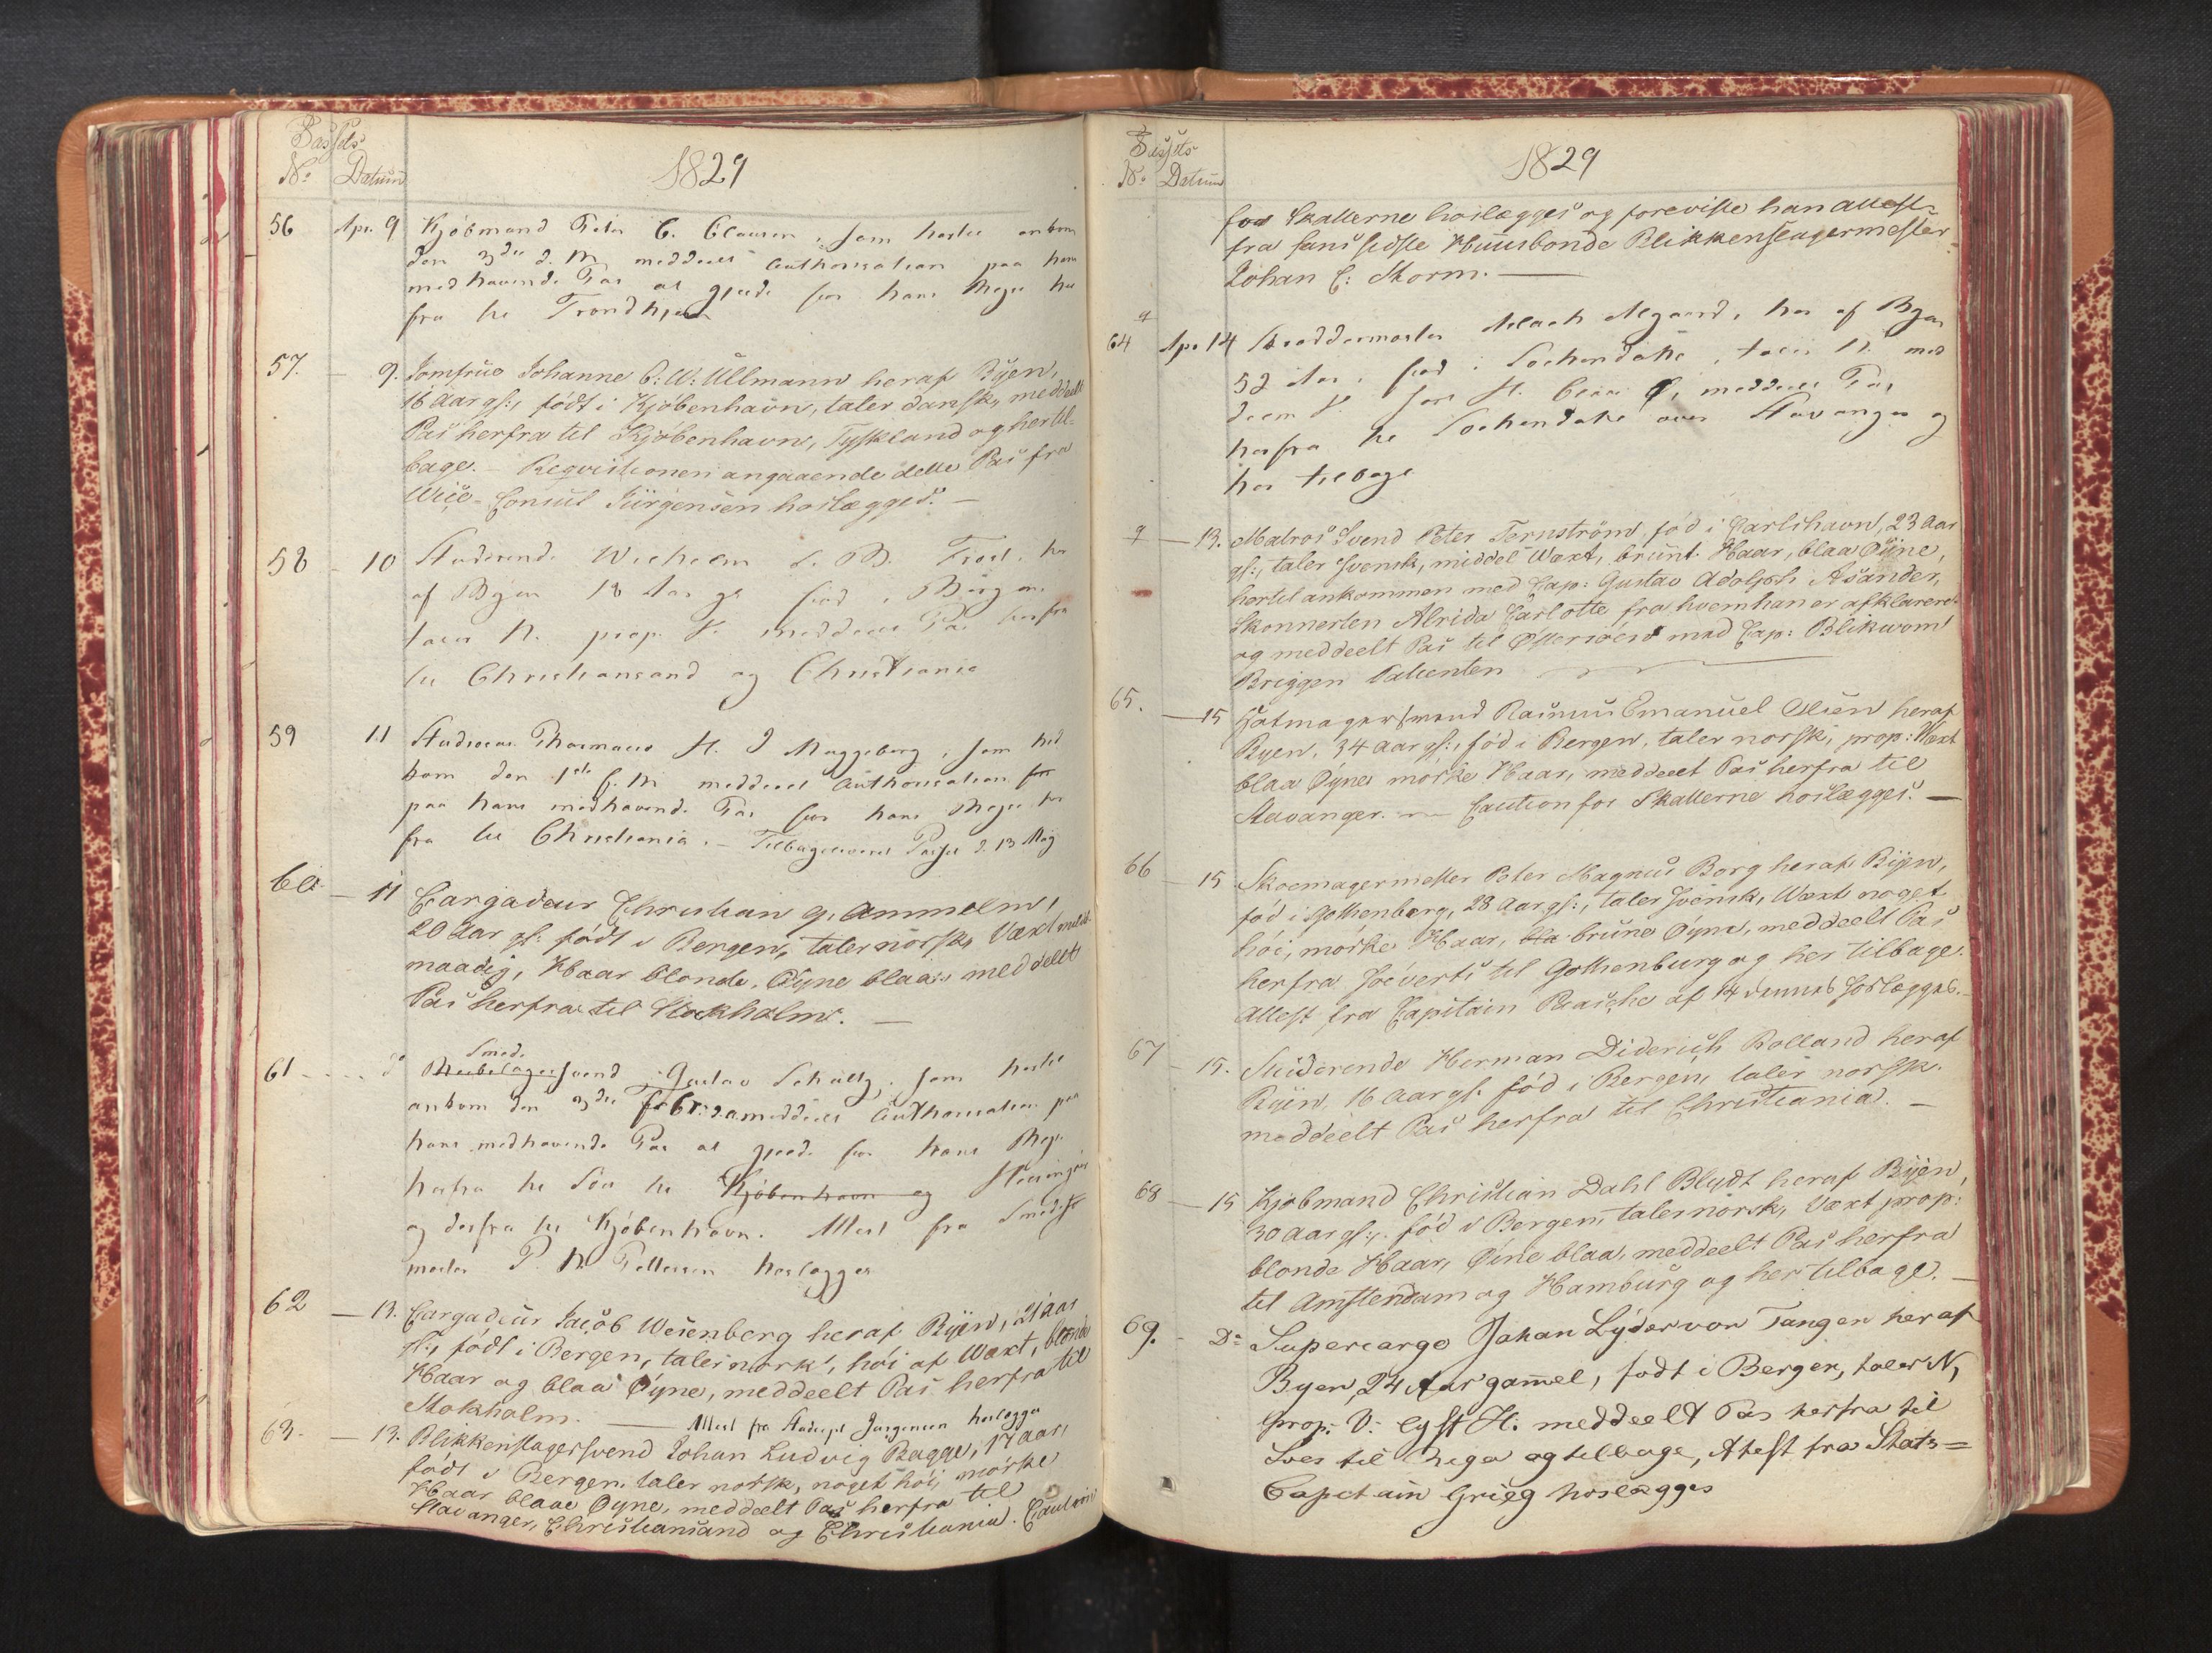 Passets
No Datum
1829
56 Apr. 9 Kjöbmand Peter C. Clausen, som hertil ankom
den 3die d. M. meddeelt Authorisation paa hans
medhavende Pas at gjælde for hans Reyse her
fra til Trondhjem
57. — 9. Jomfrue Johanne C: W: Ullmann heraf Byen,
16 Aar gl:, födt i Kjöbenhavn, taler dansk, meddeelt
Pas herfra til Kjöbenhavn, Tyskland og her til-
bage. – Reqvisitionen angaaende dette Pas fra
Vice-Consul Jürgensen hoslægges. —
58 - 10 Studerende Wilhelm B. her
af Byen 18 Aar gl född i Bergen
taler N. prop. V. meddeelt Pas herfra
til Christiansand og Christiania
59 11 Studiosus Thormodus H. I Maggeborg, som hid
kom den 1ste f. M. meddeelt Authorisation for
paa hans medhavende Pas for hans Reyse her
fra til Christiania. – Tilbageleveret Passet d. 13 Maj
60. — 11 Cargadeur Christian G. Ammelm,
20 Aar gl: födt i Bergen, taler norsk, Væxt middel-
maadig, Haar blonde, Öyne blaa, meddeelt
Pas herfra til Stockholm. —
Smede
61 - - - do Svend Gustav Schultz, som hertil
ankom den 3die Febr. meddeelt Authorisation paa
hans medhavende Pas at gjælde for hans Reyse
herfra til Söes til Kjöbenhavn og
og derfra til Kjöbenhavn. Attest fra Smede-
mester P. N. Pettersen hoslægges
62 — 13. Cargadeur Jacob Weienberg heraf Byen, 21 Aar
gl:, födt i Bergen, taler norsk, höi af Wæxt, blonde
Haar og blaa Öyne, meddeelt Pas herfra til
Stokholm. — Attest fra Jörgensen hoslægges
63. — 13. Blikkenslagersvend Johan Ludvig Bagge, 17 Aar,
födt i Bergen, taler norsk, noget höi, mörke
Haar blaae Öyne, meddeelt Pas herfra til
Stavanger, Christiansand og Christiania. Caution
Passets
No Datum
1829
for Skatterne hoslægges og foreviste han Attest
fra hans sidste Huusbonde Blikkenslagermester
Johan C: Storm. —
64 Apr 14 Skræddermester Algaard, her af Byen
52 Aar, föd i Sochendahl, taler N. med
meddeelt Pas
herfra til Sochendahl over Stavanger og
her tilbage
— 13. Matros Svend Peter Ternström, föd i Carlshavn, 23 Aar
gl:, taler svensk, middel Wæxt, brunt Haar, blaa Öyne,
hertil ankommen med Cap: Gustav Adolph Asander,
Skonnerten Alrida Carlotte fra hvem han er afklareret
og meddeelt Pas til Östersöen med Cap: Blikwom
Briggen Patienten
65. — 15 Hatmagersvend Rasmus Emanuel Olsen heraf
Byen, 34 Aar gl:, föd i Bergen, taler norsk, prop: Wæxt
blaa Öyne mörke Haar, meddeelt Pas herfra til
Stavanger. — Caution for Skatterne hoslægges. —
66 — 15 Skoemagermester Peter Magnus Borg heraf Byen,
föd i Gothenborg, 28 Aar gl:, taler svensk, Wæxt noget
höi, mörke Haar, bla brune Öyne, meddeelt Pas
herfra söeverts til Gothenburg og her tilbage.
Attest fra Capitain Rasche af 14 dennes hoslægges.
67 — 15. Studerende Herman Diderich Bolland heraf
Byen, 16 Aar gl. föd i Bergen, taler norsk.
meddeelt Pas herfra til Christiania. —
68 — 15 Kjöbmand Christian Dahl Blydt heraf Byen,
30 Aar gl:, föd i Bergen, taler norsk, Væxt prop:
blonde Haar, Öine blaa, meddeelt Pas herfra
til Amsterdam og Hamburg og her tilbage. —
69. - Do Supercargo Johan Lyder von Tangen her af
Byen, 24 Aar gamel, födt i Bergen, taler N,
prop: V: lyst H: meddeelt Pas herfra til
Söes til Riga og tilbage, Atest fra Stats=
Capitain Grieg hoslægges